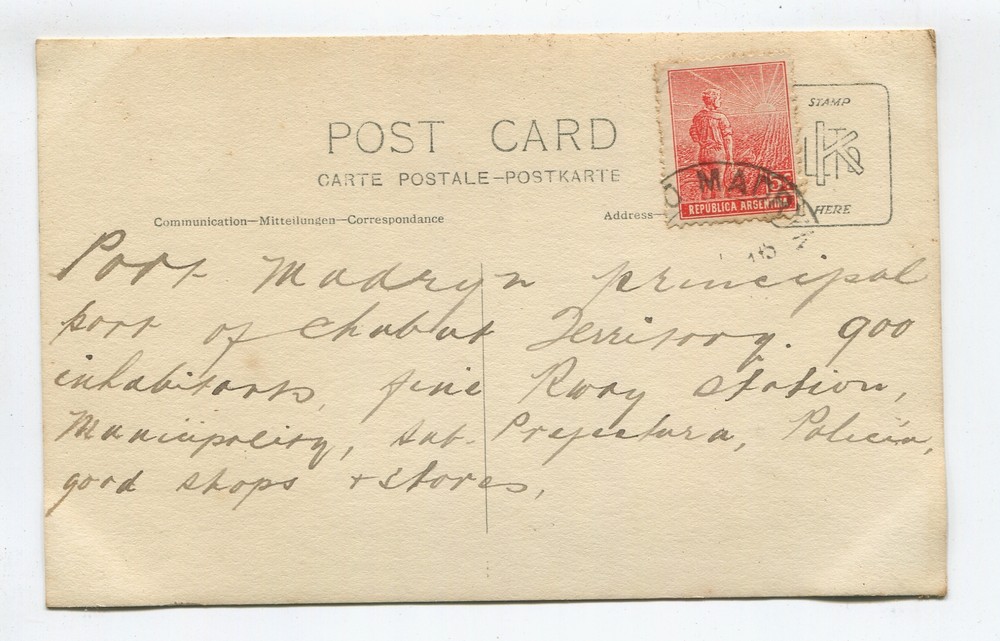 POST CARD
CARTE POSTALE—POSTKARTE
Communication—Mitteilungen—Correspondance
Address—
STAMP
HERE
5
REPUBLICA ARGENTINA
Port Madryn principal
port of Chubut Territory. 900
inhabitants, fine Rway station,
Municipality, sub-Prefectura, Policia,
good shops + stores.